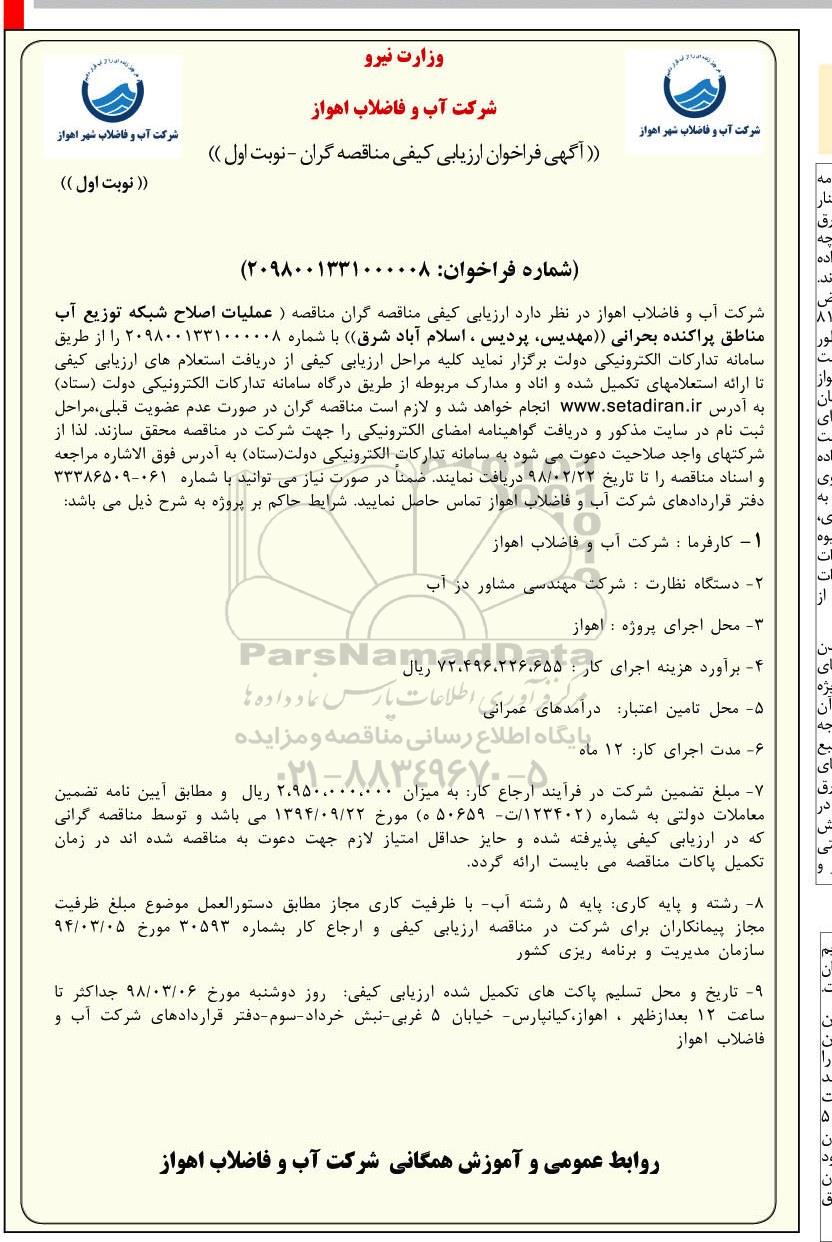 وزارت نیرو
شرکت آب و فاضلاب اهواز
شرکت آب و فاضلاب شهر اهواز
شرکت آب و فاضلاب شهر اهواز
(( آگهی فراخوان ارزیابی کیفی مناقصه گران - نوبت اول ))
(( نوبت اول ))
(شماره فراخوان: ۲۰۹۸۰۰۱۳۳۱۰۰۰۰۰۸)
شرکت آب و فاضلاب اهواز در نظر دارد ارزیابی کیفی مناقصه گران مناقصه ( عملیات اصلاح شبکه توزیع آب
مناطق پراکنده بحرانی ((مهدیس، پردیس ، اسلام آباد شرق)) با شماره ۲۰۹۸۰۰۱۳۳۱۰۰۰۰۰۸ را از طریق
سامانه تدارکات الکترونیکی دولت برگزار نماید کلیه مراحل ارزیابی کیفی از دریافت استعلام های ارزیابی کیفی
تا ارائه استعلامهای تکمیل شده و اناد و مدارک مربوطه از طریق درگاه سامانه تدارکات الکترونیکی دولت (ستاد)
به آدرس www.setadiran.ir انجام خواهد شد و لازم است مناقصه گران در صورت عدم عضویت قبلی،مراحل
ثبت نام در سایت مذکور و دریافت گواهینامه امضای الکترونیکی را جهت شرکت در مناقصه محقق سازند. لذا از
شرکتهای واجد صلاحیت دعوت می شود به سامانه تدارکات الکترونیکی دولت(ستاد) به آدرس فوق الاشاره مراجعه
و اسناد مناقصه را تا تاریخ ۹۸/۰۲/۲۲ دریافت نمایند. ضمناً در صورت نیاز می توانید با شماره ۰۶۱-۳۳۳۸۶۵۰۹
دفتر قراردادهای شرکت آب و فاضلاب اهواز تماس حاصل نمایید. شرایط حاکم بر پروژه به شرح ذیل می باشد:
۱- کارفرما : شرکت آب و فاضلاب اهواز
۲- دستگاه نظارت : شرکت مهندسی مشاور دز آب
۳- محل اجرای پروژه : اهواز
ParsNamadData
۴- برآورد هزینه اجرای کار : ۷۲،۴۹۶،۲۲۶،۶۵۵ ریال
مرکز فرآوری اطلاعات پارس نماد داده ها
۵- محل تامین اعتبار: درآمدهای عمرانی
پایگاه اطلاع رسانی مناقصه و مزایده
۶- مدت اجرای کار: ۱۲ ماه
۰۲۱-۸۸۳۴۹۶۷۰-۵
۷- مبلغ تضمین شرکت در فرآیند ارجاع کار: به میزان ۲،۹۵۰،۰۰۰،۰۰۰ ریال و مطابق آیین نامه تضمین
معاملات دولتی به شماره (۱۲۳۴۰۲/ت- ۵۰۶۵۹ ه) مورخ ۱۳۹۴/۰۹/۲۲ می باشد و توسط مناقصه گرانی
که در ارزیابی کیفی پذیرفته شده و حایز حداقل امتیاز لازم جهت دعوت به مناقصه شده اند در زمان
تکمیل پاکات مناقصه می بایست ارائه گردد.
۸- رشته و پایه کاری: پایه ۵ رشته آب- با ظرفیت کاری مجاز مطابق دستورالعمل موضوع مبلغ ظرفیت
مجاز پیمانکاران برای شرکت در مناقصه ارزیابی کیفی و ارجاع کار بشماره ۳۰۵۹۳ مورخ ۹۴/۰۳/۰۵
سازمان مدیریت و برنامه ریزی کشور
۹- تاریخ و محل تسلیم پاکت های تکمیل شده ارزیابی کیفی: روز دوشنبه مورخ ۹۸/۰۳/۰۶ جداکثر تا
ساعت ۱۲ بعدازظهر ، اهواز،کیانپارس- خیابان ۵ غربی-نبش خرداد-سوم-دفتر قراردادهای شرکت آب و
فاضلاب اهواز
روابط عمومی و آموزش همگانی شرکت آب و فاضلاب اهواز